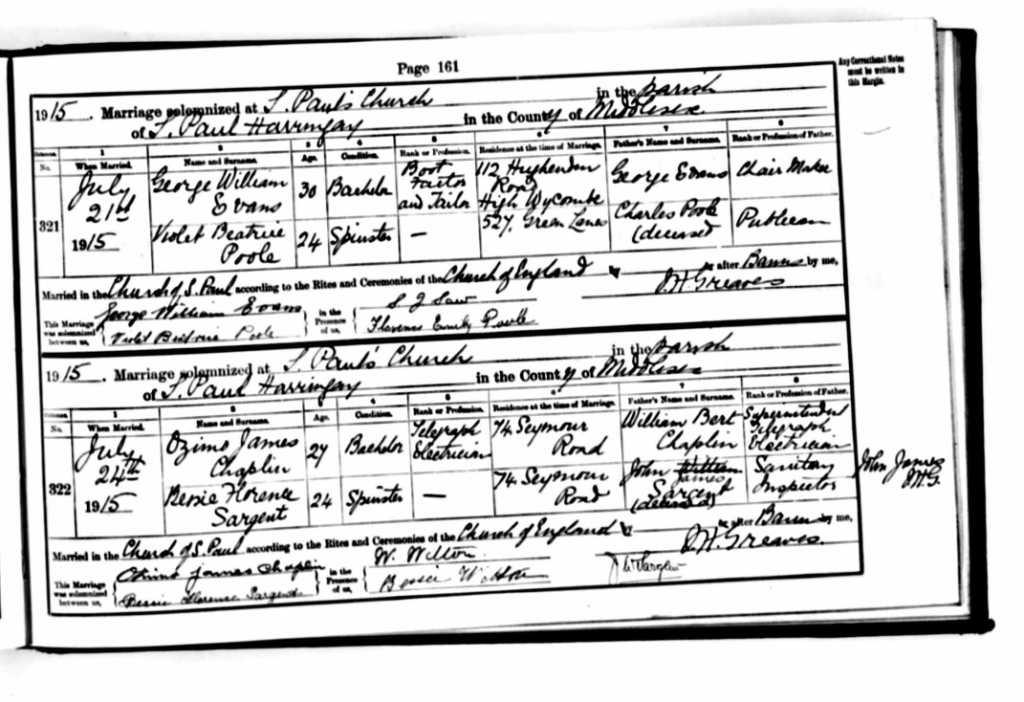 Page 161
Any Correctional Notes must be written in this Margin.
1915. Marriage solemnized at S. Paul's Church in the Parish
of S. Paul Harringay in the County of Middlesex
No. When Married. Name and Surname. Age. Condition. Rank or Profession. Residence at the time of Marriage. Father's Name and Surname. Rank or Profession of Father.
321 July 21st 1915 George William Evans 30 Bachelor Boot Factor and Tailor 112 Hughenden Road High Wycombe George Evans Chair Maker
Violet Beatrice Poole 24 Spinster — 527. Green Lanes Charles Poole (deceased Publican
Married in the Church of S. Paul according to the Rites and Ceremonies of the Church of England after Banns by me,
George William Evans S J Saw J H Greaves
This Marriage was solemnized between us, in the Presence of us,
Violet Beatrice Poole Florence Emily Poole
1915. Marriage solemnized at S. Paul's Church in the Parish
of S. Paul Harringay in the County of Middlesex
No. When Married. Name and Surname. Age. Condition. Rank or Profession. Residence at the time of Marriage. Father's Name and Surname. Rank or Profession of Father.
322 July 24th 1915 Ozimo James Chaplin 27 Bachelor Telegraph Electrician 74 Seymour Road William Bert Chaplin Superintendent Telegraph Electrician
Bessie Florence Sargent 24 Spinster — 74 Seymour Road John William James Sargent (deceased) Sanitary Inspector
John James
Married in the Church of S. Paul according to the Rites and Ceremonies of the Church of England after Banns by me,
Ozimo James Chaplin W. Wilton J H Greaves.
This Marriage was solemnized between us, in the Presence of us,
Bessie Florence Sargent Bessie